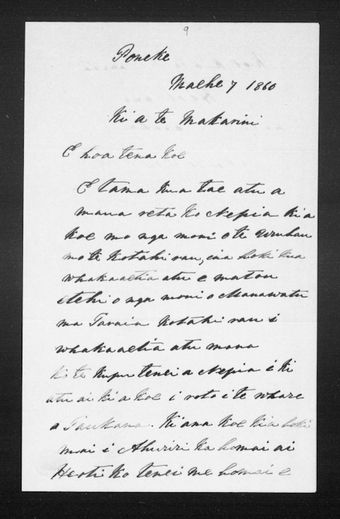 9
Poneke
Maehe 7 1860
Ki a te Makarini
E hoa tena koe
E tama kua tae atu a
maua reta ko Nepia ki a
koe mo nga moni o te
mo te kotahi rau, ina hoki kua
whakaaetia atu e matou
etehi o nga moni o Manawatu
ma Taraia kotahi rau i
whakaaetia atu mana
ki te kupu tenei a Nepia i ki
atu ai ki a koe i roto i te whare
a Ki ana koe kia hoki
mai i Ahuriri ka homai ai
Heoti ko tenei me homai e